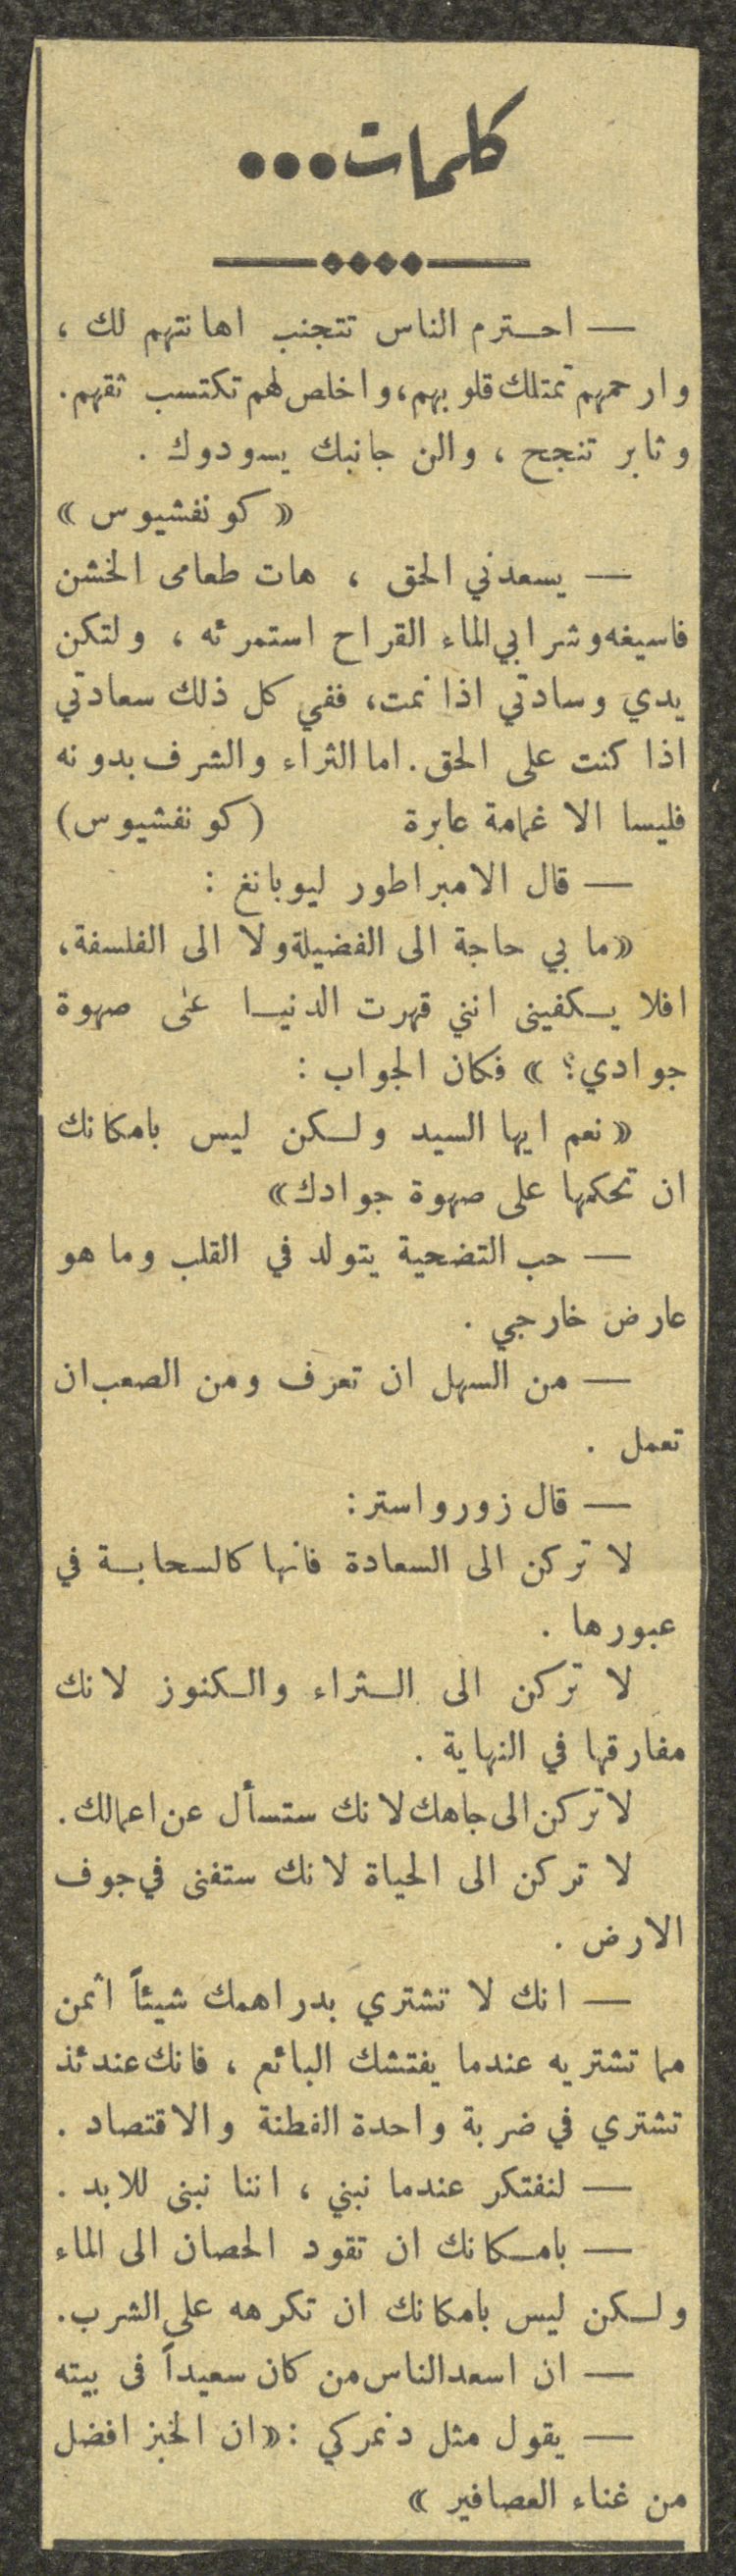 كلمات...
— احترم الناس تتجنب اهانتهم لك ،
وارحمهم تمتلك قلوبهم، واخلص لهم تكتسب ثقهم.
وثابر تنجح ، والن جانبك يسودوك .
« كونفشيوس »
— يسعدني الحق ، هات طعامى الخشن
فاسيغه وشرابي الماء القراح استمرئه ، ولتكن
يدي وسادتي اذا نمت، ففي كل ذلك سعادتي
اذا كنت على الحق. اما الثراء والشرف بدونه
فليسا الا غمامة عابرة (كونفشيوس)
— قال الامبراطور ليوبانغ :
«ما بي حاجة الى الفضيلة ولا الى الفلسفة،
افلا يكفينى انني قهرت الدنيا على صهوة
جوادي؟ » فكان الجواب :
«نعم ايها السيد ولكن ليس بامكانك
ان تحكمها على صهوة جوادك»
— حب التضحية يتولد في القلب وما هو
عارض خارجي .
— من السهل ان تعرف ومن الصعب ان
تعمل .
— قال زورواستر:
لا تركن الى السعادة فانها كالسحابة في
عبورها .
لا تركن الى الثراء والكنوز لانك
مفارقها في النهاية .
لا تركن الى جاهك لانك ستسأل عن اعمالك.
لا تركن الى الحياة لانك ستفنى في جوف
الارض .
— انك لا تشتري بدراهمك شيئاً اثمن
مما تشتريه عندما يفتشك البائع ، فانك عندئذ
تشتري في ضربة واحدة الفطنة والاقتصاد .
— لنفتكر عندما نبني ، اننا نبنى للابد .
— بامكانك ان تقود الحصان الى الماء
ولكن ليس بامكانك ان تكرهه على الشرب.
— ان اسعد الناس من كان سعيداً فى بيته
— يقول مثل دنمركي : «ان الخبز افضل
من غناء العصافير »